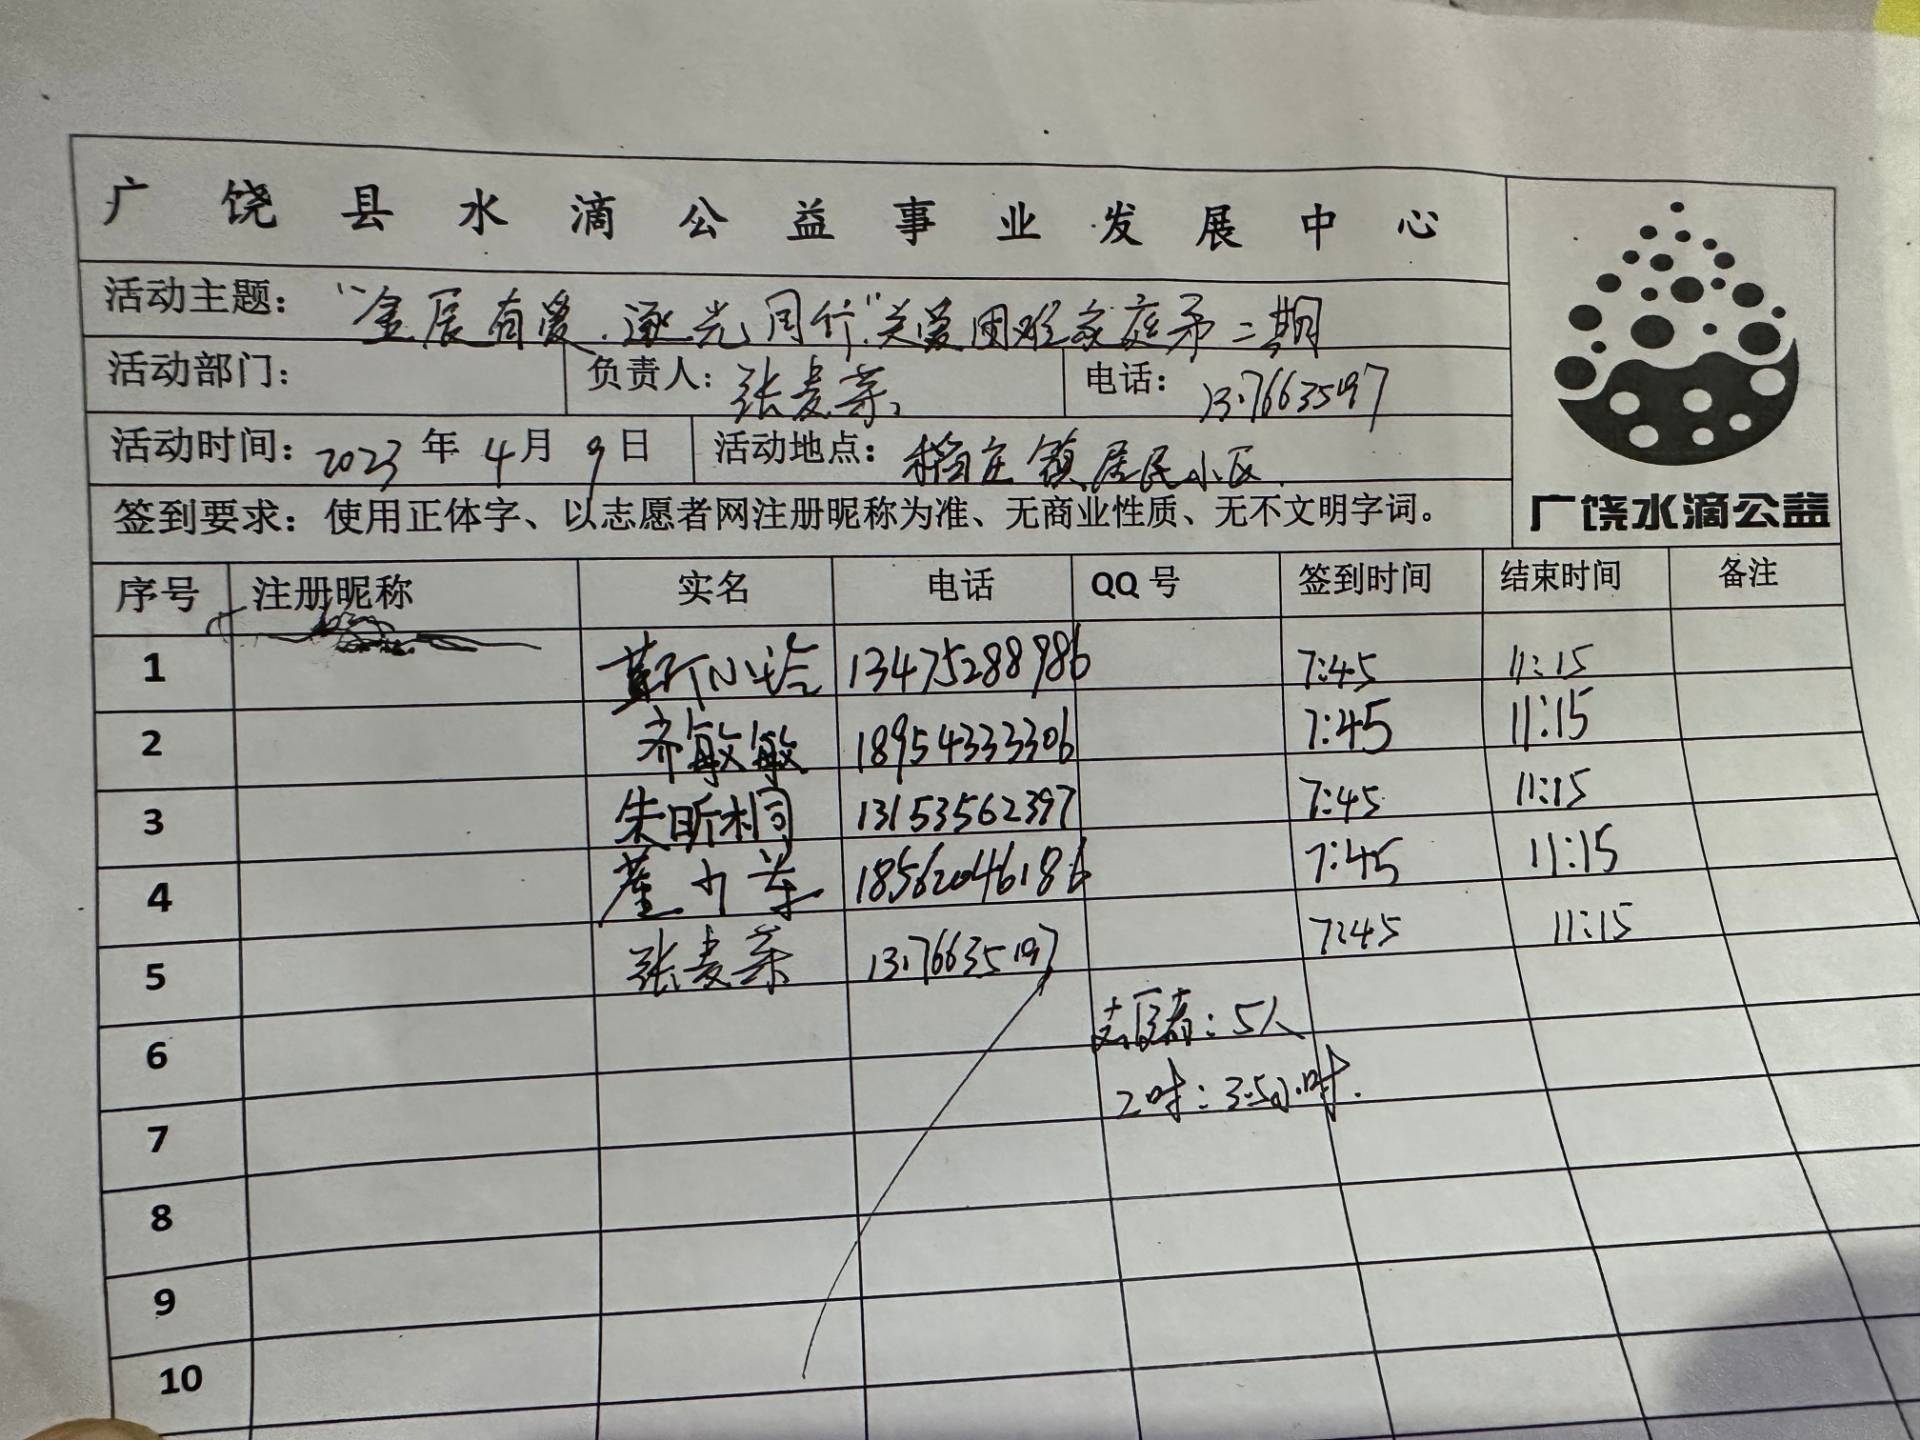 广饶县水滴公益事业发展中心
活动主题：“金辰有爱.逐光同行”关爱困难家庭第二期
活动部门： 负责人：张麦荣 电话：13176635197
活动时间：2023年4月9日 活动地点：稻庄镇居民小区.
签到要求：使用正体字、以志愿者网注册昵称为准、无商业性质、无不文明字词。
广饶水滴公益
序号 注册昵称 实名 电话 QQ号 签到时间 结束时间 备注
1 13475288986 7:45 11:15
2 齐敏敏 18954333306 7:45 11:15
3 朱昕桐 13153562397 7:45 11:15
4 18562046186 7:45 11:15
5 张麦荣 13176635197 7:45 11:15
6 志愿者：5人
7 工时：3.5小时.
8
9
10